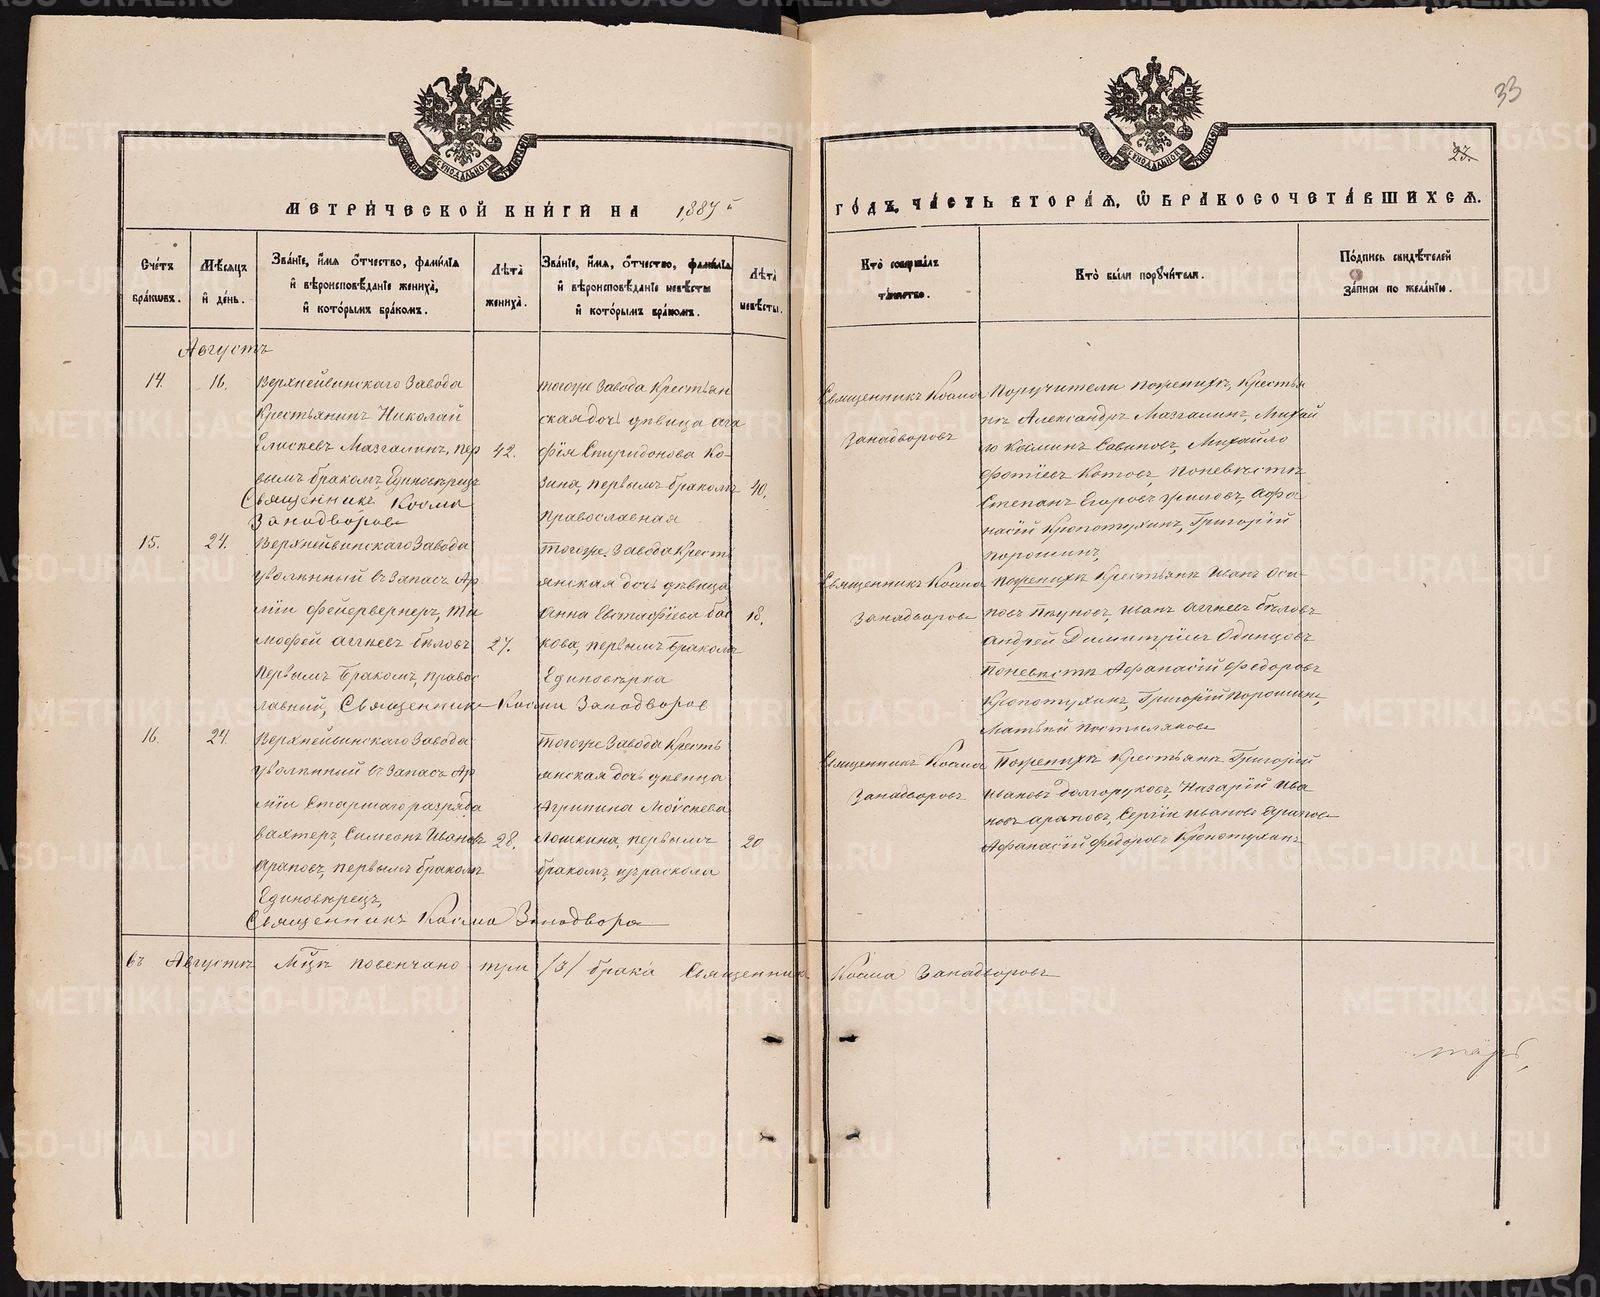 33
23.
МЕТРИЧЕСКОЙ КНИГИ НА 1887 й
ГОДЪ, ЧАСТЬ ВТОРАЯ, Ѡ БРАКОСОЧЕТАВШИХСЯ.
Счетъ бракѡвъ.
Мѣсяцъ и день.
Званіе, имя отчество, фамилія и вѣроисповѣданіе жениха, и которымъ бракомъ.
Лѣта жениха.
Званіе, имя, отчество, фамилія и вѣроисповѣданіе невѣсты и которымъ бракомъ.
Лѣта невѣсты.
Кто совершалъ таинство.
Кто были поручители.
Подпись свидѣтелей записи по желанію.
Августъ
14. 16.
Верхнейвинскаго Завода
Крестьянинъ Николай
Елисеевъ Мазгалинъ, пер
вымъ бракомъ Единовѣрецъ
Священникъ Косма
Западворовъ
42.
тогоже Завода Крестьян
ская дочь дѣвица Ага
фія Спиридонова Ко-
зина, первымъ бракомъ
Православная
40.
Священникъ Косма
Западворовъ
Поручители пожениху, Крестья
не Александръ Мазгалинъ, Михай
ло Косминъ Савиновъ, Михайло
Фотіевъ Котовъ, поневѣсте
Степанъ Егоровъ Ауа
насій Кропотухинъ, Григорій
Порошинъ,
15. 24.
Верхнейвинскаго Завода
уволенный въ Запасъ Ар
міи фейерверкеръ, Ти
мофей Аггеевъ Бѣловъ
первымъ бракомъ, правос
лавный, Священникъ Косма Западворовъ
27.
тогоже Завода Крест
янская дочь дѣвица
Анна Евстафіева Бас
кова, первымъ бракомъ
Единовѣрка
18.
Священникъ Косма
Западворовъ
пожениху Крестьяне Иванъ Оси-
повъ Пѣуновъ, Иванъ Аггеевъ Бѣловъ
Андрей Димитріевъ Одинцовъ
Поневѣсте Афанасій Федоровъ
Кропотухинъ, Григорій Порошинъ,
Матвѣй Постиляковъ
16. 24.
Верхнейвинскаго Завода
уволенный въ Запасъ Ар
міи Старшаго разряда
вахтеръ, Симеонъ Ивановъ
Араповъ, первымъ бракомъ
Единовѣрецъ,
Священникъ Косма Западворовъ
28.
тогоже Завода Кресть
янская дочь дѣвица
Агрипина Моисеева
Лошкина, первымъ
бракомъ, изъ раскола
20
Священникъ Косма
Западворовъ
Пожениху Крестьяне Григорій
Ивановъ Долгоруковъ, Назарій Ива
новъ Араповъ, Сергій Ивановъ
Афанасій Федоровъ Кропотухинъ
въ Августѣ М-цѣ повенчано три /3/ брака Священникъ Косма Западворовъ
METRIKI.GASO-URAL.RU